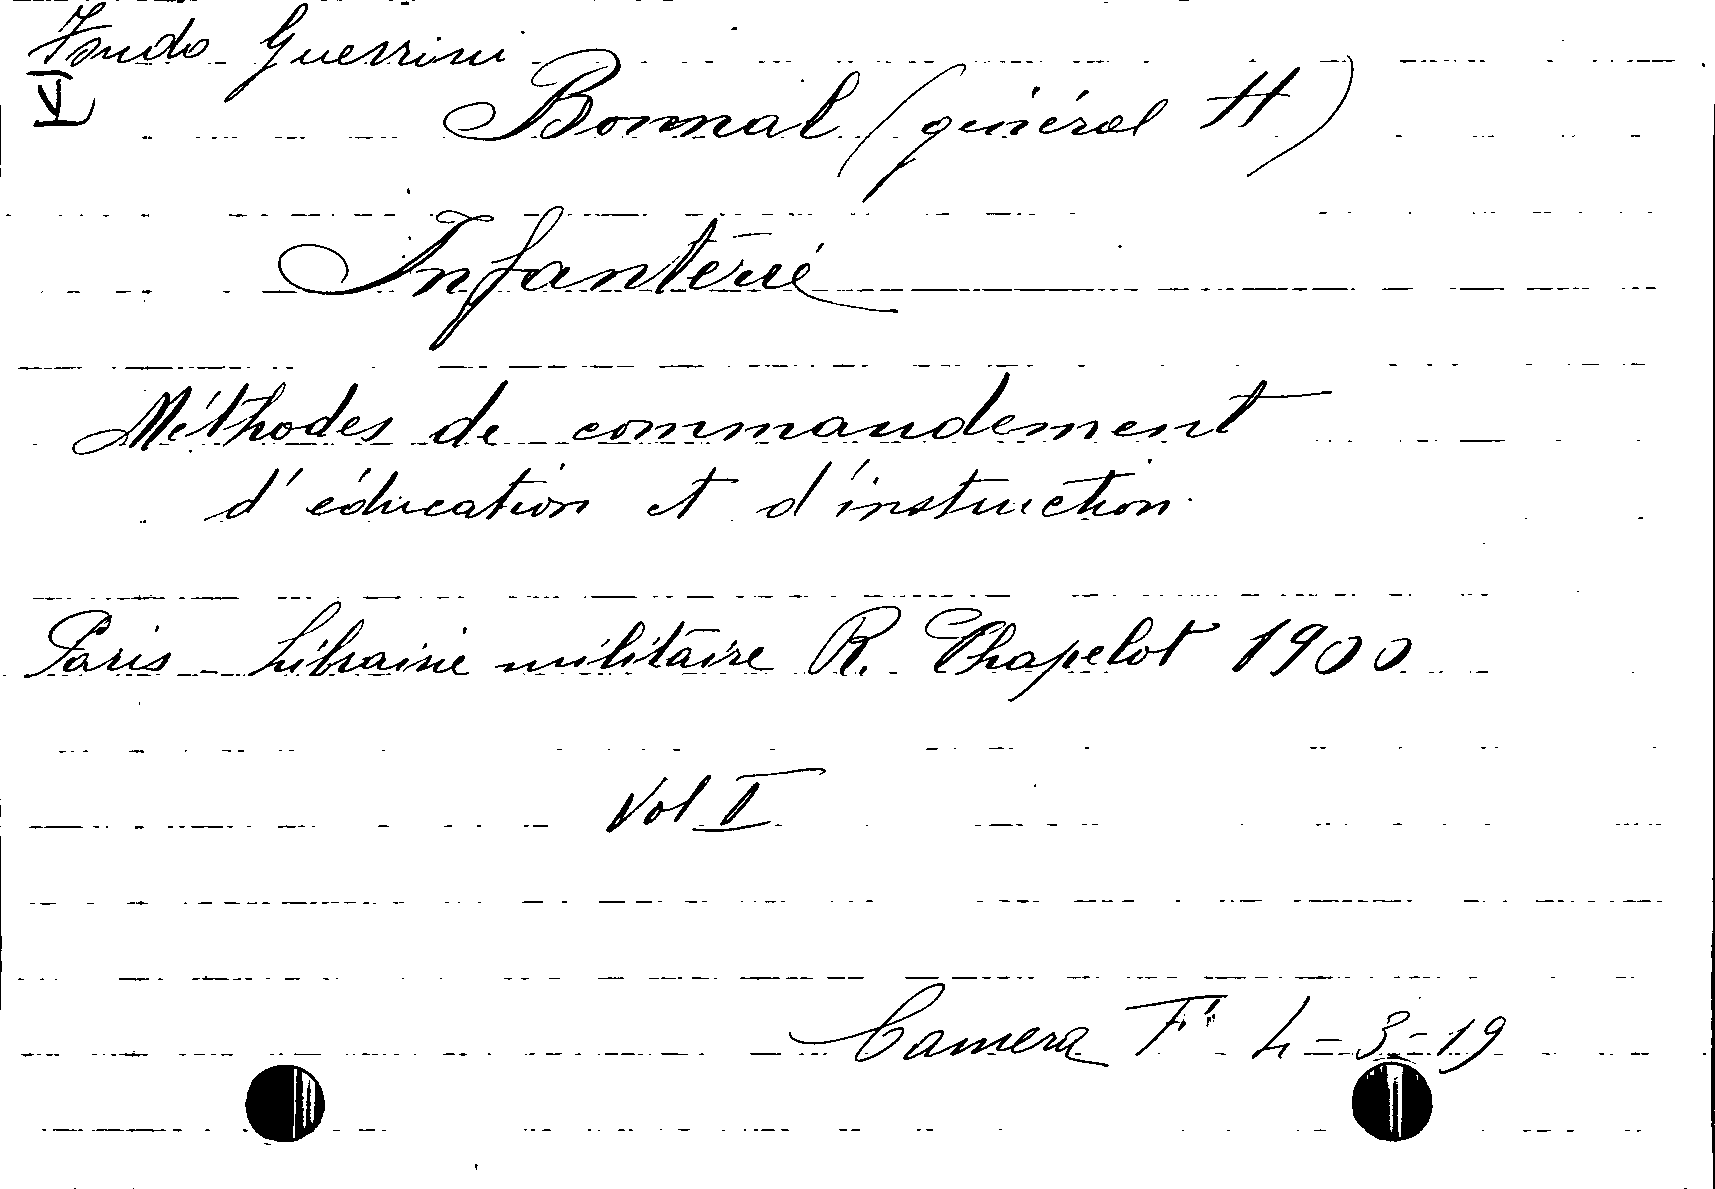 Fondo Guerrini
V
Bonnal (général H)
Infanterie
Méthodes de commandement
d'éducation et d'instruction
Paris - Librairie militaire R. Chapelot 1900
Vol I
Camera F' 4-3-19